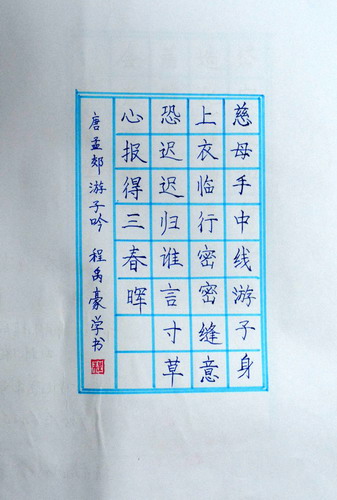 慈母手中线游子身
上衣临行密密缝意
恐迟迟归谁言寸草
心报得三春晖
唐孟郊游子吟 程禹豪学书